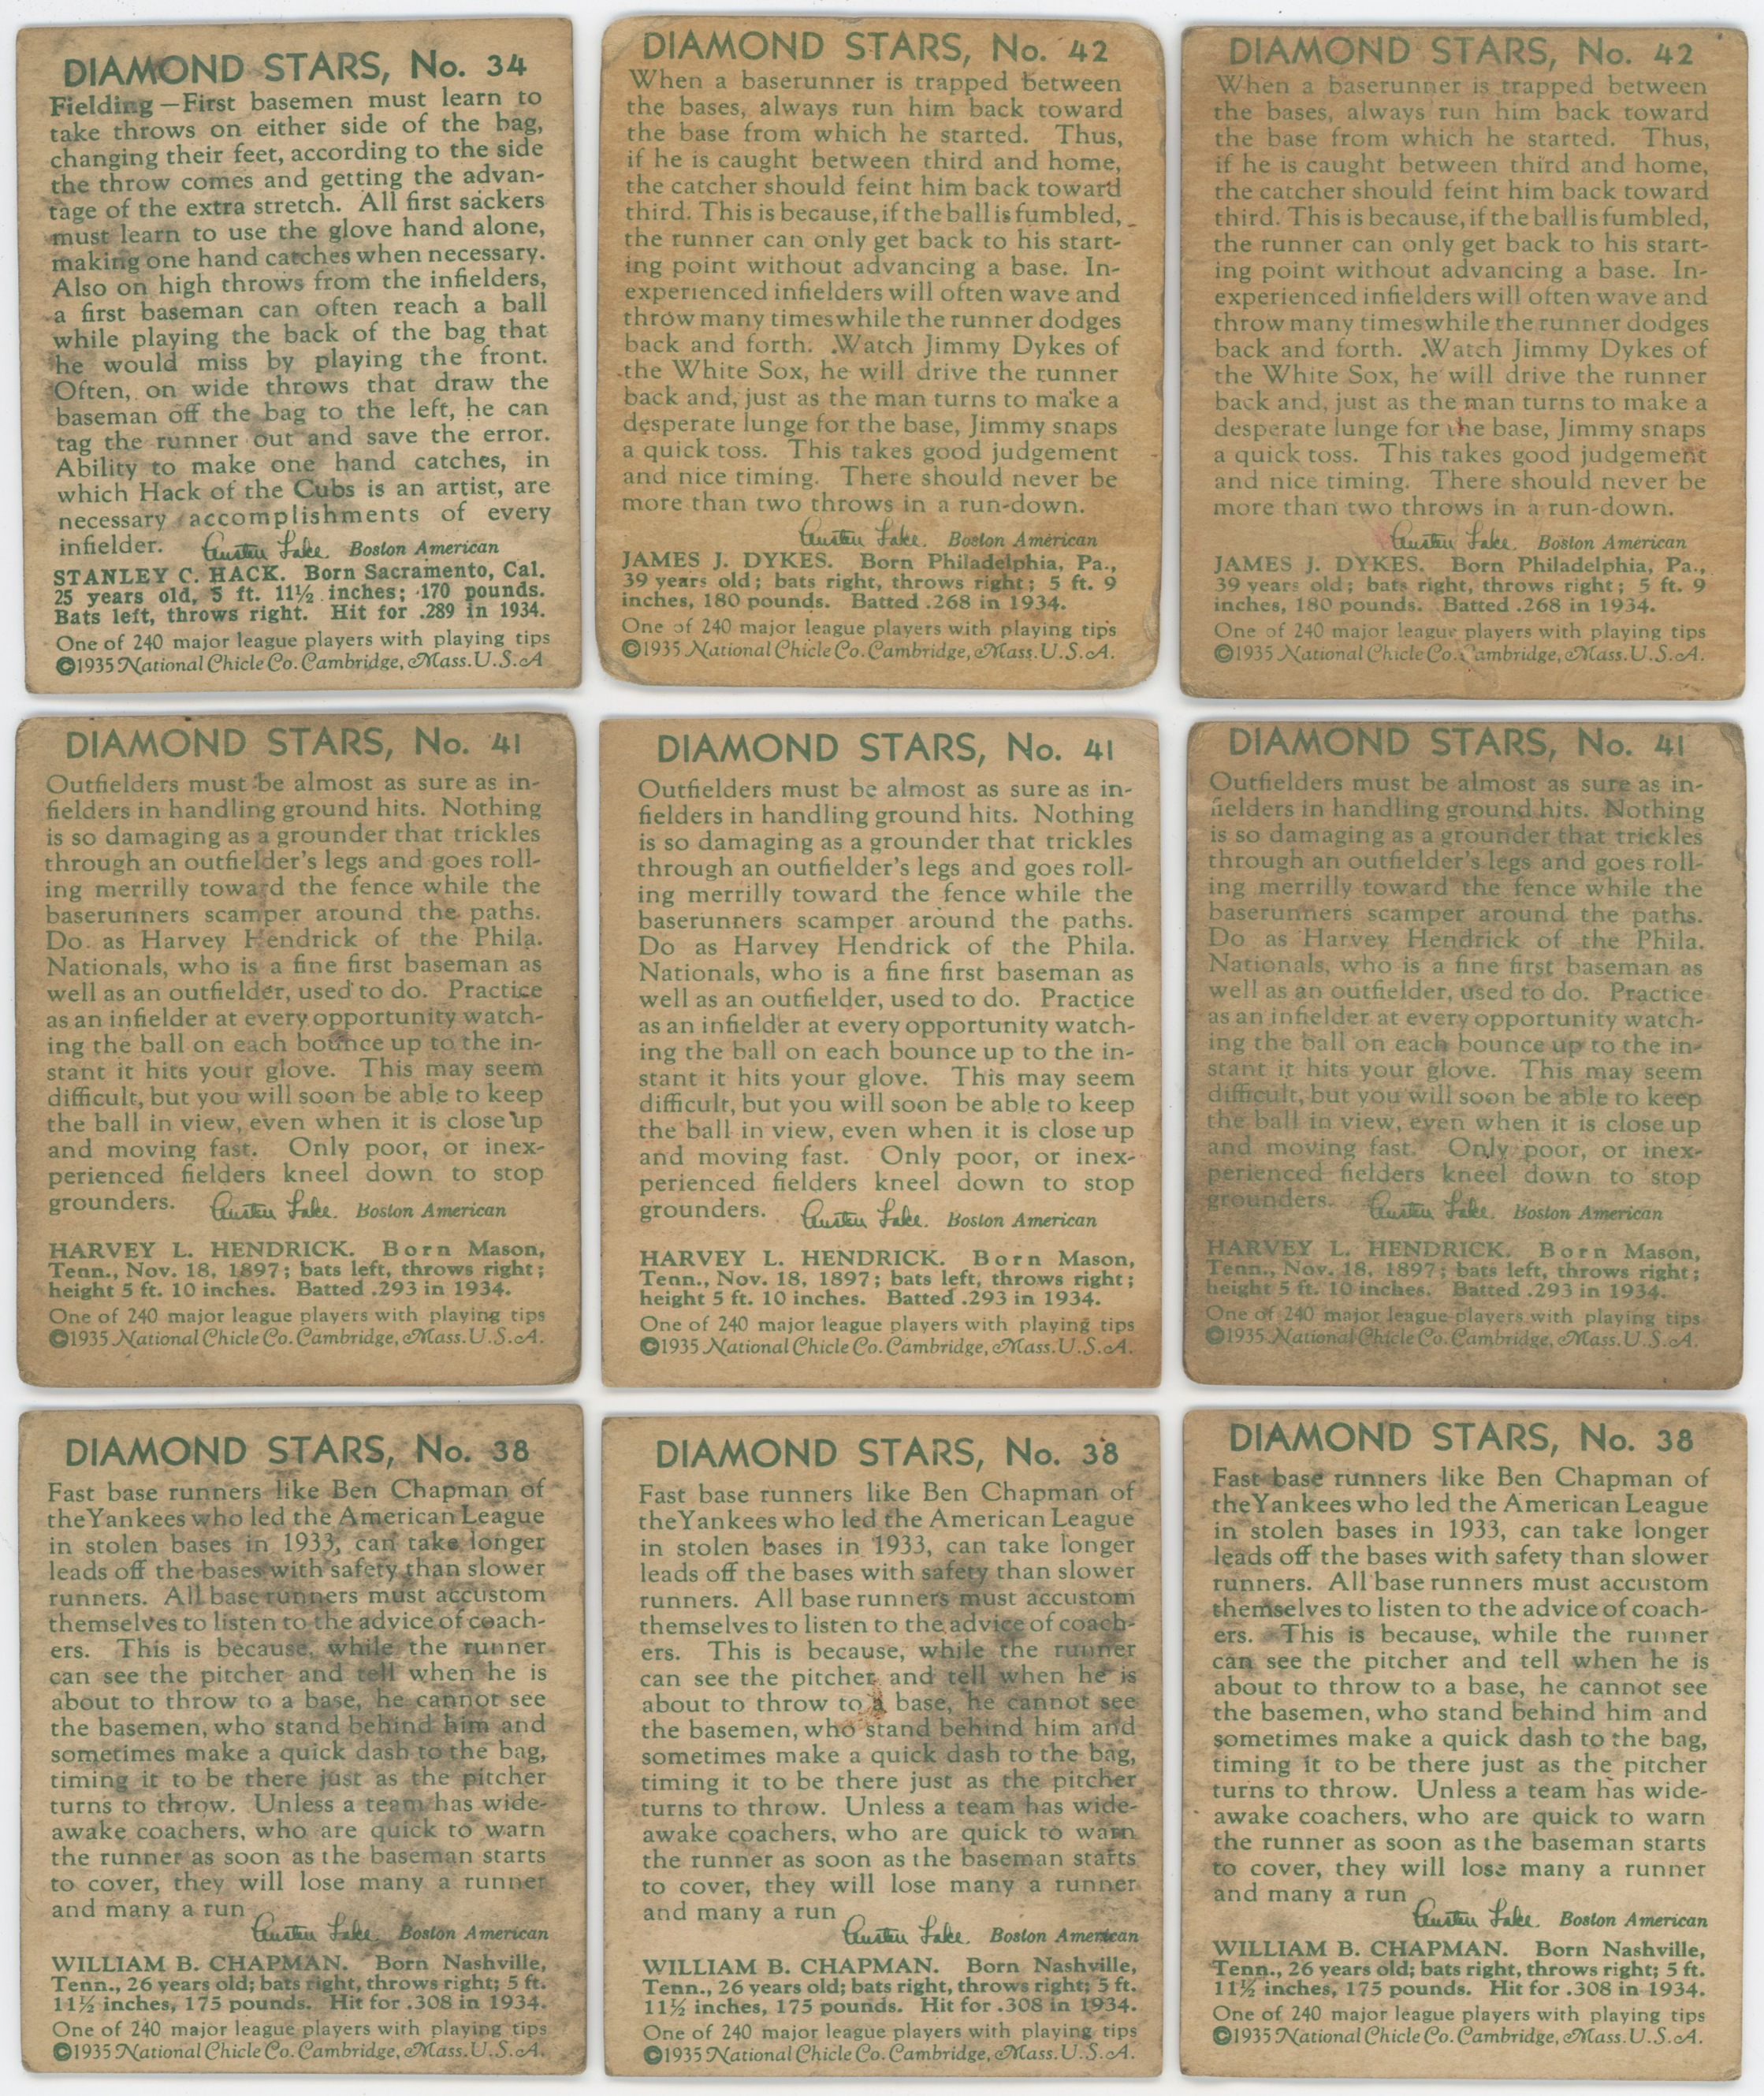 DIAMOND STARS, No. 34
Fielding—First basemen must learn to
take throws on either side of the bag,
changing their feet, according to the side
the throw comes and getting the advan-
tage of the extra stretch. All first sackers
must learn to use the glove hand alone,
making one hand catches when necessary.
Also on high throws from the infielders,
a first baseman can often reach a ball
while playing the back of the bag that
he would miss by playing the front.
Often, on wide throws that draw the
baseman off the bag to the left, he can
tag the runner out and save the error.
Ability to make one hand catches, in
which Hack of the Cubs is an artist, are
necessary accomplishments of every
infielder. Austen Lake. Boston American
STANLEY C. HACK. Born Sacramento, Cal.
25 years old, 5 ft. 11½ inches; 170 pounds.
Bats left, throws right. Hit for .289 in 1934.
One of 240 major league players with playing tips
©1935 National Chicle Co. Cambridge, Mass. U.S.A
DIAMOND STARS, No. 42
When a baserunner is trapped between
the bases, always run him back toward
the base from which he started. Thus,
if he is caught between third and home,
the catcher should feint him back toward
third. This is because, if the ball is fumbled,
the runner can only get back to his start-
ing point without advancing a base. In-
experienced infielders will often wave and
throw many times while the runner dodges
back and forth. Watch Jimmy Dykes of
the White Sox, he will drive the runner
back and, just as the man turns to make a
desperate lunge for the base, Jimmy snaps
a quick toss. This takes good judgement
and nice timing. There should never be
more than two throws in a run-down.
Austen Lake. Boston American
JAMES J. DYKES. Born Philadelphia, Pa.,
39 years old; bats right, throws right; 5 ft. 9
inches, 180 pounds. Batted .268 in 1934.
One of 240 major league players with playing tips
©1935 National Chicle Co. Cambridge, Mass. U.S.A.
DIAMOND STARS, No. 42
When a baserunner is trapped between
the bases, always run him back toward
the base from which he started. Thus,
if he is caught between third and home,
the catcher should feint him back toward
third. This is because, if the ball is fumbled,
the runner can only get back to his start-
ing point without advancing a base. In-
experienced infielders will often wave and
throw many times while the runner dodges
back and forth. Watch Jimmy Dykes of
the White Sox, he will drive the runner
back and, just as the man turns to make a
desperate lunge for the base, Jimmy snaps
a quick toss. This takes good judgement
and nice timing. There should never be
more than two throws in a run-down.
Austen Lake. Boston American
JAMES J. DYKES. Born Philadelphia, Pa.,
39 years old; bats right, throws right; 5 ft. 9
inches, 180 pounds. Batted .268 in 1934.
One of 240 major league players with playing tips
©1935 National Chicle Co. Cambridge, Mass. U.S.A.
DIAMOND STARS, No. 41
Outfielders must be almost as sure as in-
fielders in handling ground hits. Nothing
is so damaging as a grounder that trickles
through an outfielder's legs and goes roll-
ing merrilly toward the fence while the
baserunners scamper around the paths.
Do as Harvey Hendrick of the Phila.
Nationals, who is a fine first baseman as
well as an outfielder, used to do. Practice
as an infielder at every opportunity watch-
ing the ball on each bounce up to the in-
stant it hits your glove. This may seem
difficult, but you will soon be able to keep
the ball in view, even when it is close up
and moving fast. Only poor, or inex-
perienced fielders kneel down to stop
grounders. Austen Lake. Boston American
HARVEY L. HENDRICK. Born Mason,
Tenn., Nov. 18, 1897; bats left, throws right;
height 5 ft. 10 inches. Batted .293 in 1934.
One of 240 major league players with playing tips
©1935 National Chicle Co. Cambridge, Mass. U.S.A.
DIAMOND STARS, No. 41
Outfielders must be almost as sure as in-
fielders in handling ground hits. Nothing
is so damaging as a grounder that trickles
through an outfielder's legs and goes roll-
ing merrilly toward the fence while the
baserunners scamper around the paths.
Do as Harvey Hendrick of the Phila.
Nationals, who is a fine first baseman as
well as an outfielder, used to do. Practice
as an infielder at every opportunity watch-
ing the ball on each bounce up to the in-
stant it hits your glove. This may seem
difficult, but you will soon be able to keep
the ball in view, even when it is close up
and moving fast. Only poor, or inex-
perienced fielders kneel down to stop
grounders. Austen Lake. Boston American
HARVEY L. HENDRICK. Born Mason,
Tenn., Nov. 18, 1897; bats left, throws right;
height 5 ft. 10 inches. Batted .293 in 1934.
One of 240 major league players with playing tips
©1935 National Chicle Co. Cambridge, Mass. U.S.A.
DIAMOND STARS, No. 41
Outfielders must be almost as sure as in-
fielders in handling ground hits. Nothing
is so damaging as a grounder that trickles
through an outfielder's legs and goes roll-
ing merrilly toward the fence while the
baserunners scamper around the paths.
Do as Harvey Hendrick of the Phila.
Nationals, who is a fine first baseman as
well as an outfielder, used to do. Practice
as an infielder at every opportunity watch-
ing the ball on each bounce up to the in-
stant it hits your glove. This may seem
difficult, but you will soon be able to keep
the ball in view, even when it is close up
and moving fast. Only poor, or inex-
perienced fielders kneel down to stop
grounders. Austen Lake. Boston American
HARVEY L. HENDRICK. Born Mason,
Tenn., Nov. 18, 1897; bats left, throws right;
height 5 ft. 10 inches. Batted .293 in 1934.
One of 240 major league players with playing tips
©1935 National Chicle Co. Cambridge, Mass. U.S.A.
DIAMOND STARS, No. 38
Fast base runners like Ben Chapman of
the Yankees who led the American League
in stolen bases in 1933, can take longer
leads off the bases with safety than slower
runners. All base runners must accustom
themselves to listen to the advice of coach-
ers. This is because, while the runner
can see the pitcher and tell when he is
about to throw to a base, he cannot see
the basemen, who stand behind him and
sometimes make a quick dash to the bag,
timing it to be there just as the pitcher
turns to throw. Unless a team has wide-
awake coachers, who are quick to warn
the runner as soon as the baseman starts
to cover, they will lose many a runner
and many a run
Austen Lake. Boston American
WILLIAM B. CHAPMAN. Born Nashville,
Tenn., 26 years old; bats right, throws right; 5 ft.
11½ inches, 175 pounds. Hit for .308 in 1934.
One of 240 major league players with playing tips
©1935 National Chicle Co. Cambridge, Mass. U.S.A.
DIAMOND STARS, No. 38
Fast base runners like Ben Chapman of
the Yankees who led the American League
in stolen bases in 1933, can take longer
leads off the bases with safety than slower
runners. All base runners must accustom
themselves to listen to the advice of coach-
ers. This is because, while the runner
can see the pitcher and tell when he is
about to throw to a base, he cannot see
the basemen, who stand behind him and
sometimes make a quick dash to the bag,
timing it to be there just as the pitcher
turns to throw. Unless a team has wide-
awake coachers, who are quick to warn
the runner as soon as the baseman starts
to cover, they will lose many a runner
and many a run
Austen Lake. Boston American
WILLIAM B. CHAPMAN. Born Nashville,
Tenn., 26 years old; bats right, throws right; 5 ft.
11½ inches, 175 pounds. Hit for .308 in 1934.
One of 240 major league players with playing tips
©1935 National Chicle Co. Cambridge, Mass. U.S.A.
DIAMOND STARS, No. 38
Fast base runners like Ben Chapman of
the Yankees who led the American League
in stolen bases in 1933, can take longer
leads off the bases with safety than slower
runners. All base runners must accustom
themselves to listen to the advice of coach-
ers. This is because, while the runner
can see the pitcher and tell when he is
about to throw to a base, he cannot see
the basemen, who stand behind him and
sometimes make a quick dash to the bag,
timing it to be there just as the pitcher
turns to throw. Unless a team has wide-
awake coachers, who are quick to warn
the runner as soon as the baseman starts
to cover, they will lose many a runner
and many a run
Austen Lake. Boston American
WILLIAM B. CHAPMAN. Born Nashville,
Tenn., 26 years old; bats right, throws right; 5 ft.
11½ inches, 175 pounds. Hit for .308 in 1934.
One of 240 major league players with playing tips
©1935 National Chicle Co. Cambridge, Mass. U.S.A.